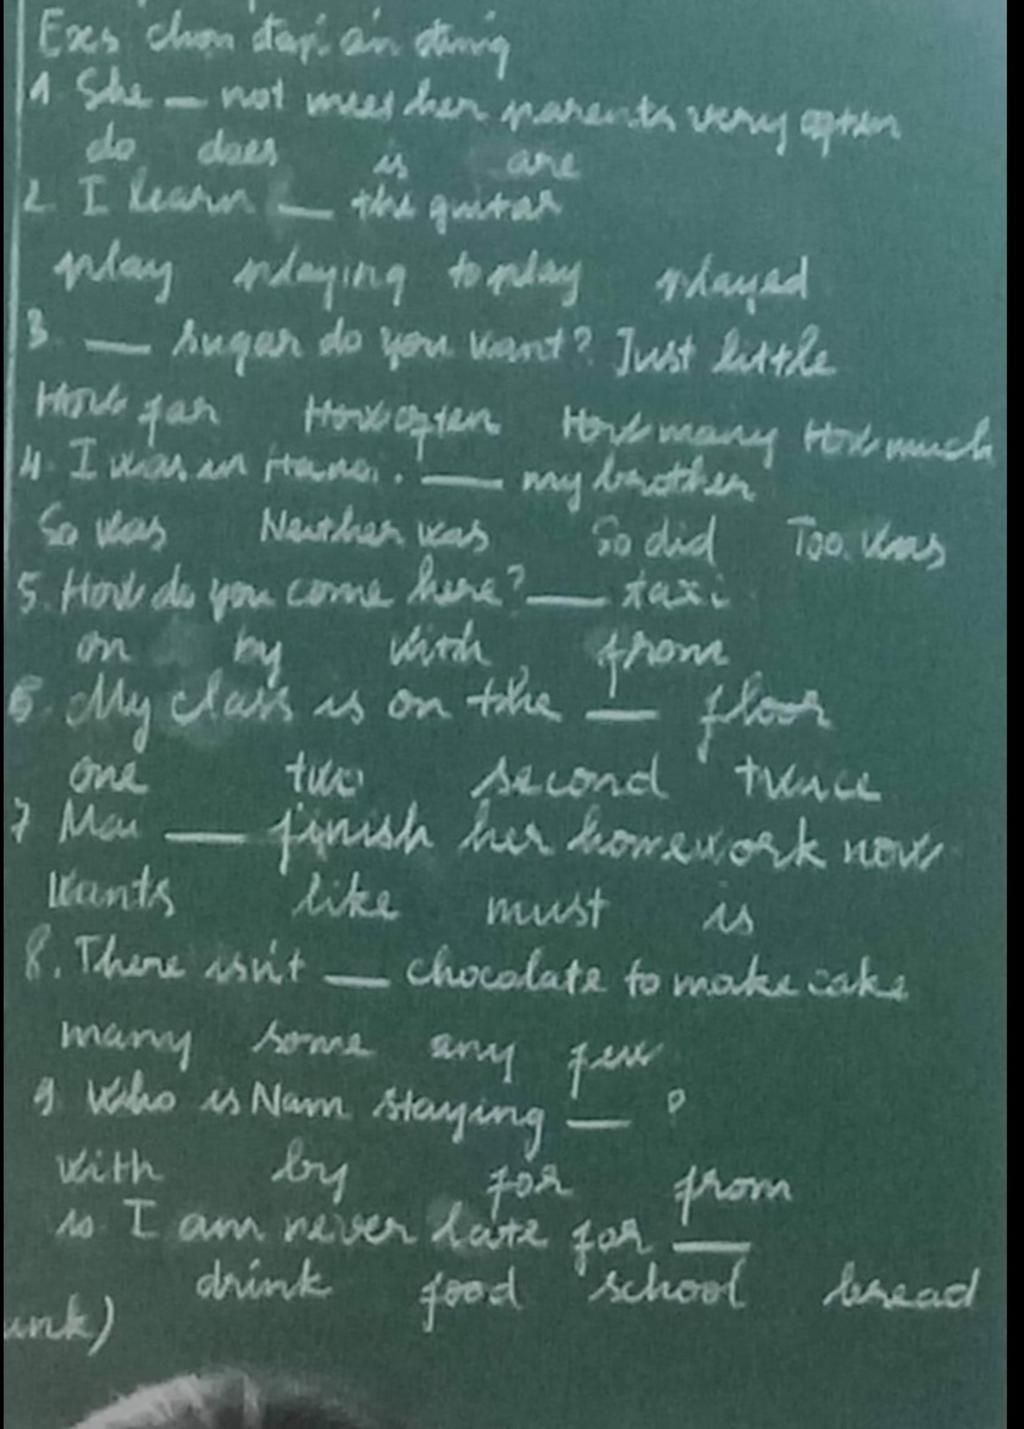 Exs chọn đáp án đúng
1. She — not meet her parents very often
do does is are
2 I learn — the guitar
play playing to play played
3. — sugar do you want? Just little
How far How often How many How much
4. I was in Hanoi. — my brother
So was Neither was So did Too was
5. How do you come here? — taxi
on by with from
6. My class is on the — floor
one two second twice
7 Mai — finish her homework now
wants like must is
8. There isn't — chocolate to make cake
many some any few
9. Who is Nam staying — ?
with by for from
10 I am never late for —
drink food school bread